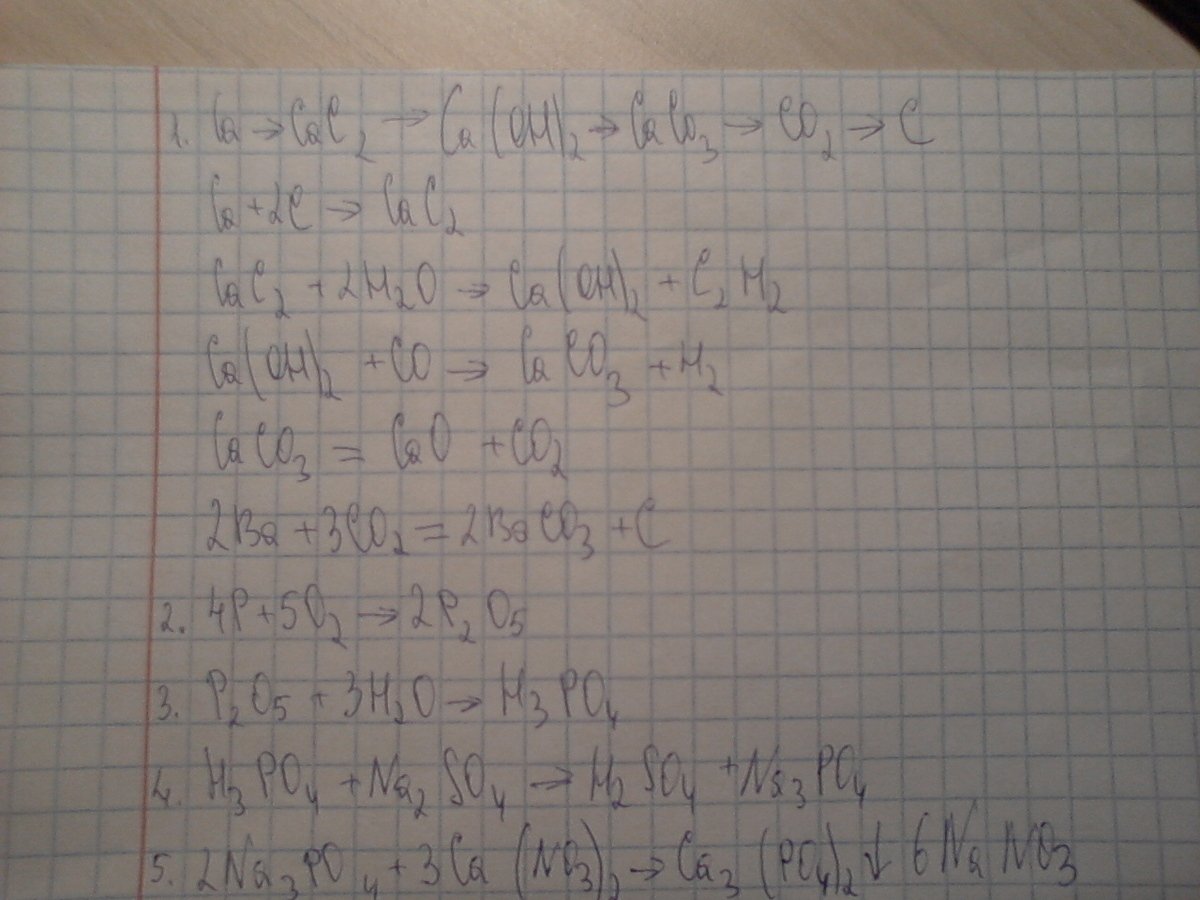 1. Ca → CaC₂ → Ca(OH)₂ → CaCO₃ → CO₂ → C
Ca + 2C → CaC₂
CaC₂ + 2H₂O → Ca(OH)₂ + C₂H₂
Ca(OH)₂ + CO → CaCO₃ + H₂
CaCO₃ = CaO + CO₂
2Ba + 3CO₂ = 2BaCO₃ + C
2. 4P + 5O₂ → 2P₂O₅
3. P₂O₅ + 3H₂O → H₃PO₄
4. H₃PO₄ + Na₂SO₄ → H₂SO₄ + Na₃PO₄
5. 2Na₃PO₄ + 3Ca(NO₃)₂ → Ca₃(PO₄)₂↓ 6NaNO₃